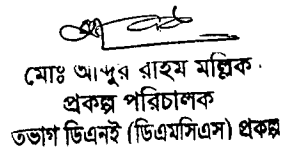 মোঃ আব্দুর রাহম মল্লিক
প্রকল্প পরিচালক
তভাগ ডিএনই (ডিএমসিএস) প্রকল্প